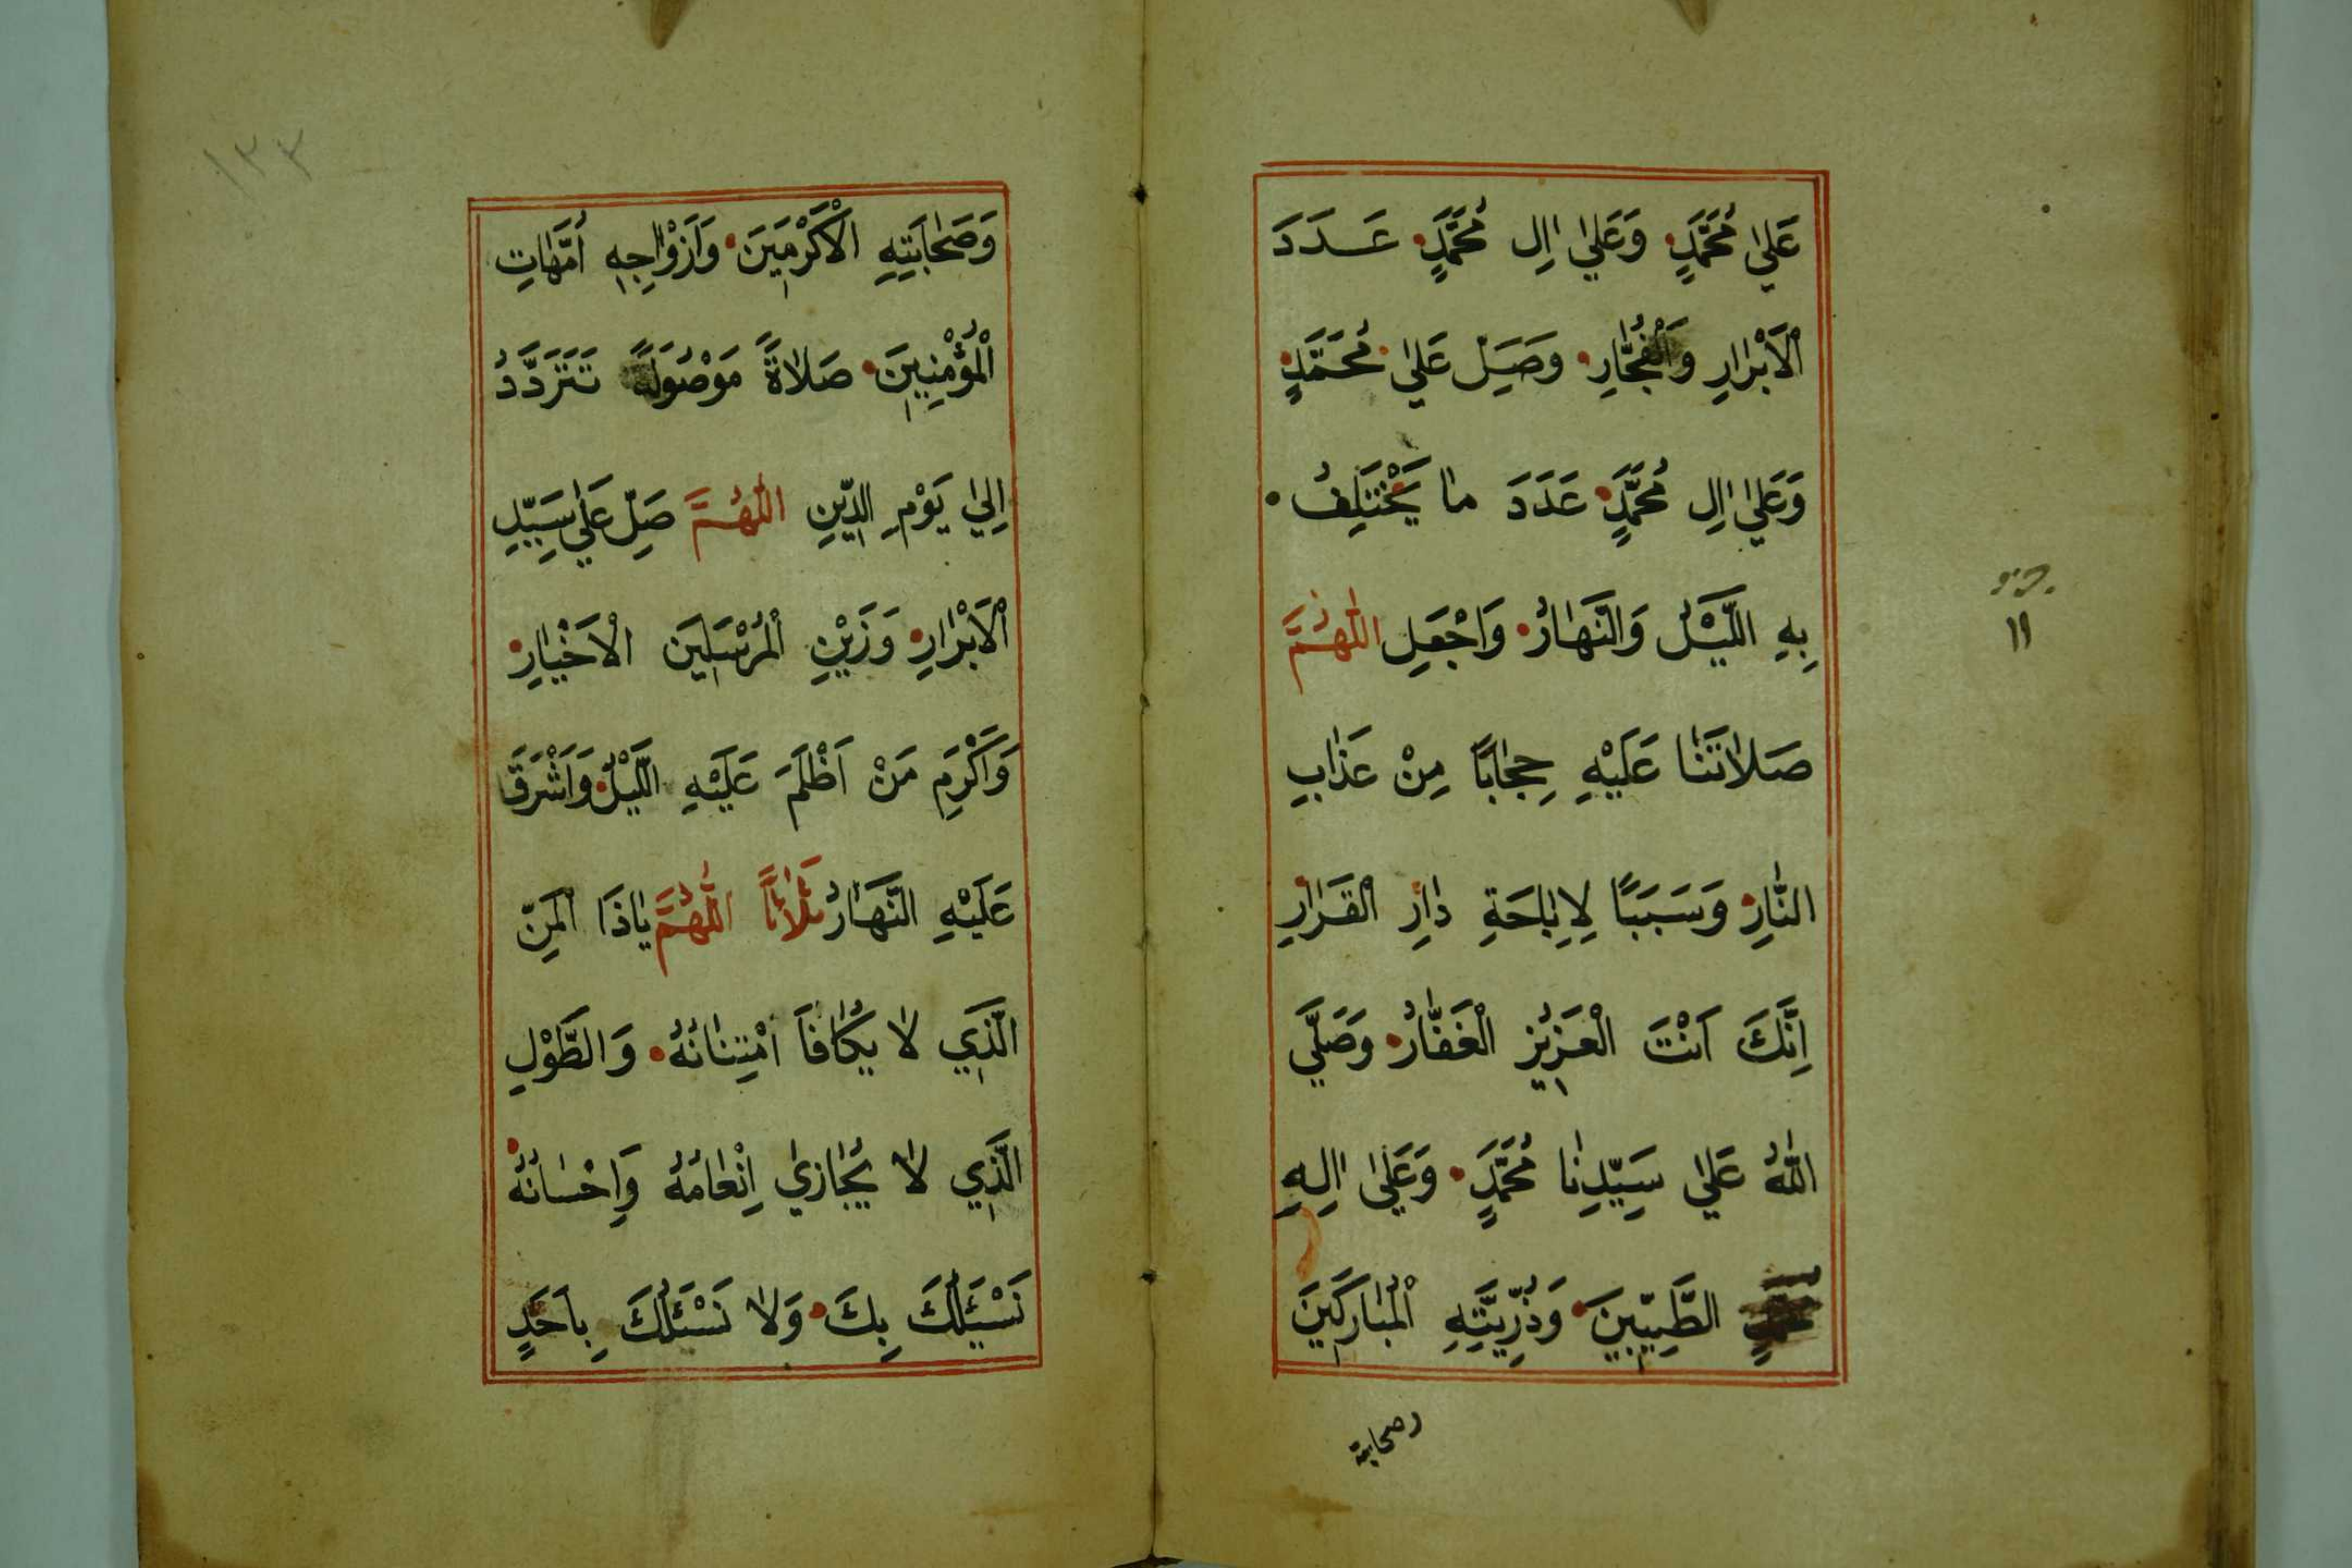 عَلىٰ مُحَمَّدٍ وَعَلىٰ اٰلِ مُحَمَّدٍ عَدَدَ
الْاَبْرٰارِ وَالْفُجّٰارِ وَصَلِّ عَلىٰ مُحَمَّدٍ
وَعَلىٰ اٰلِ مُحَمَّدٍ عَدَدَ مٰا يَخْتَلِفُ
بِهِ اللَّيْلُ وَالنَّهٰارُ وَاجْعَلِ اللّٰهُمَّ
صَلاٰتَنٰا عَلَيْهِ حِجٰابًا مِنْ عَذٰابِ
النّٰارِ وَسَبَبًا لِاِبٰاحَةِ دٰارِ الْقَرٰارِ
اِنَّكَ اَنْتَ الْعَزِيزُ الْغَفّٰارُ وَصَلَّي
اللّٰهُ عَلىٰ سَيِّدِنٰا مُحَمَّدٍ وَعَلىٰ اٰلِهِ
الطَّيِّبِينَ وَذُرِّيَّتِهِ الْمُبٰارَكِينَ
وصحابته
١١
١٣٣
وَصَحٰابَتِهِ الْاَكْرَمِينَ وَاَزْوٰاجِهِ اُمَّهٰاتِ
الْمُؤْمِنِينَ صَلاٰةً مَوْصُولَةً تَتَرَدَّدُ
اِلىٰ يَوْمِ الدِّينِ اَللّٰهُمَّ صَلِّ عَلىٰ سَيِّدِ
الْاَبْرٰارِ وَزَيْنِ الْمُرْسَلِينَ الْاَخْيٰارِ
وَاَكْرَمِ مَنْ اَظْلَمَ عَلَيْهِ اللَّيْلُ وَاَشْرَقَ
عَلَيْهِ النَّهٰارُ ثَلاٰثًا اَللّٰهُمَّ يٰاذَا الْمَنِّ
الَّذِي لاٰ يُكٰافَا امْتِنٰانُهُ وَالطَّوْلِ
الَّذِي لاٰ يُجٰازىٰ اِنْعٰامُهُ وَاِحْسٰانُهُ
نَسْئَلُكَ بِكَ وَلاٰ نَسْئَلُكَ بِاَحَدٍ